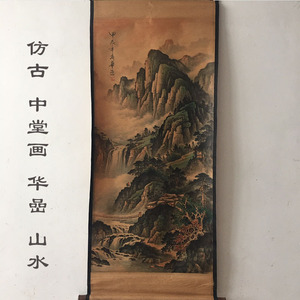 仿古 中堂画 华喦 山水